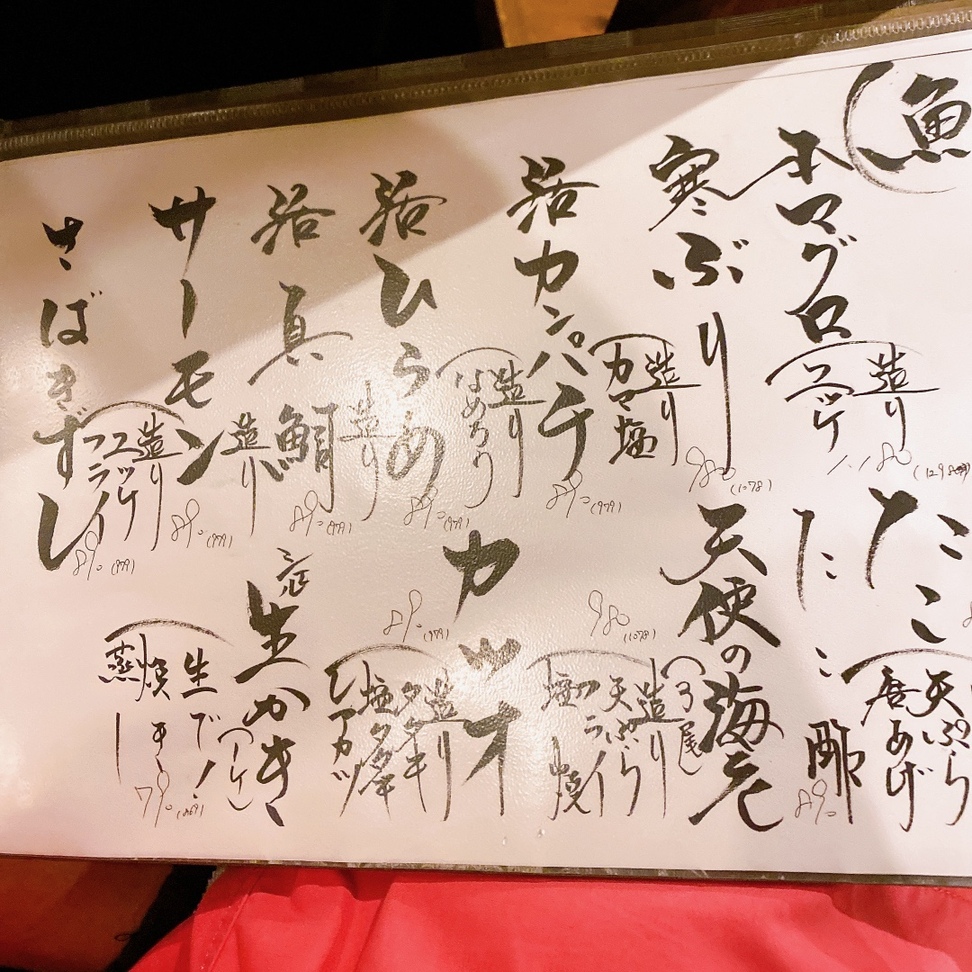 魚
本マグロ
造り
ユッケ
1,180
寒ぶり
造り
カマ塩
980
(1078)
活カンパチ
造り
890
(979)
活ひらめ
造り
890
(979)
活真鯛
造り
890
(979)
サーモン
造り
ユッケ
フライ
890
(979)
さばきずし
890
(979)
たこ
天ぷら
唐あげ
たこ酢
890
天使の海老
(3尾)
造り
天ぷら
フライ
塩焼
980
(1078)
カツオ
造り
タタキ
塩タタキ
レアカツ
890
(979)
生かき
(一ケ)
生で!
焼き
蒸し
790